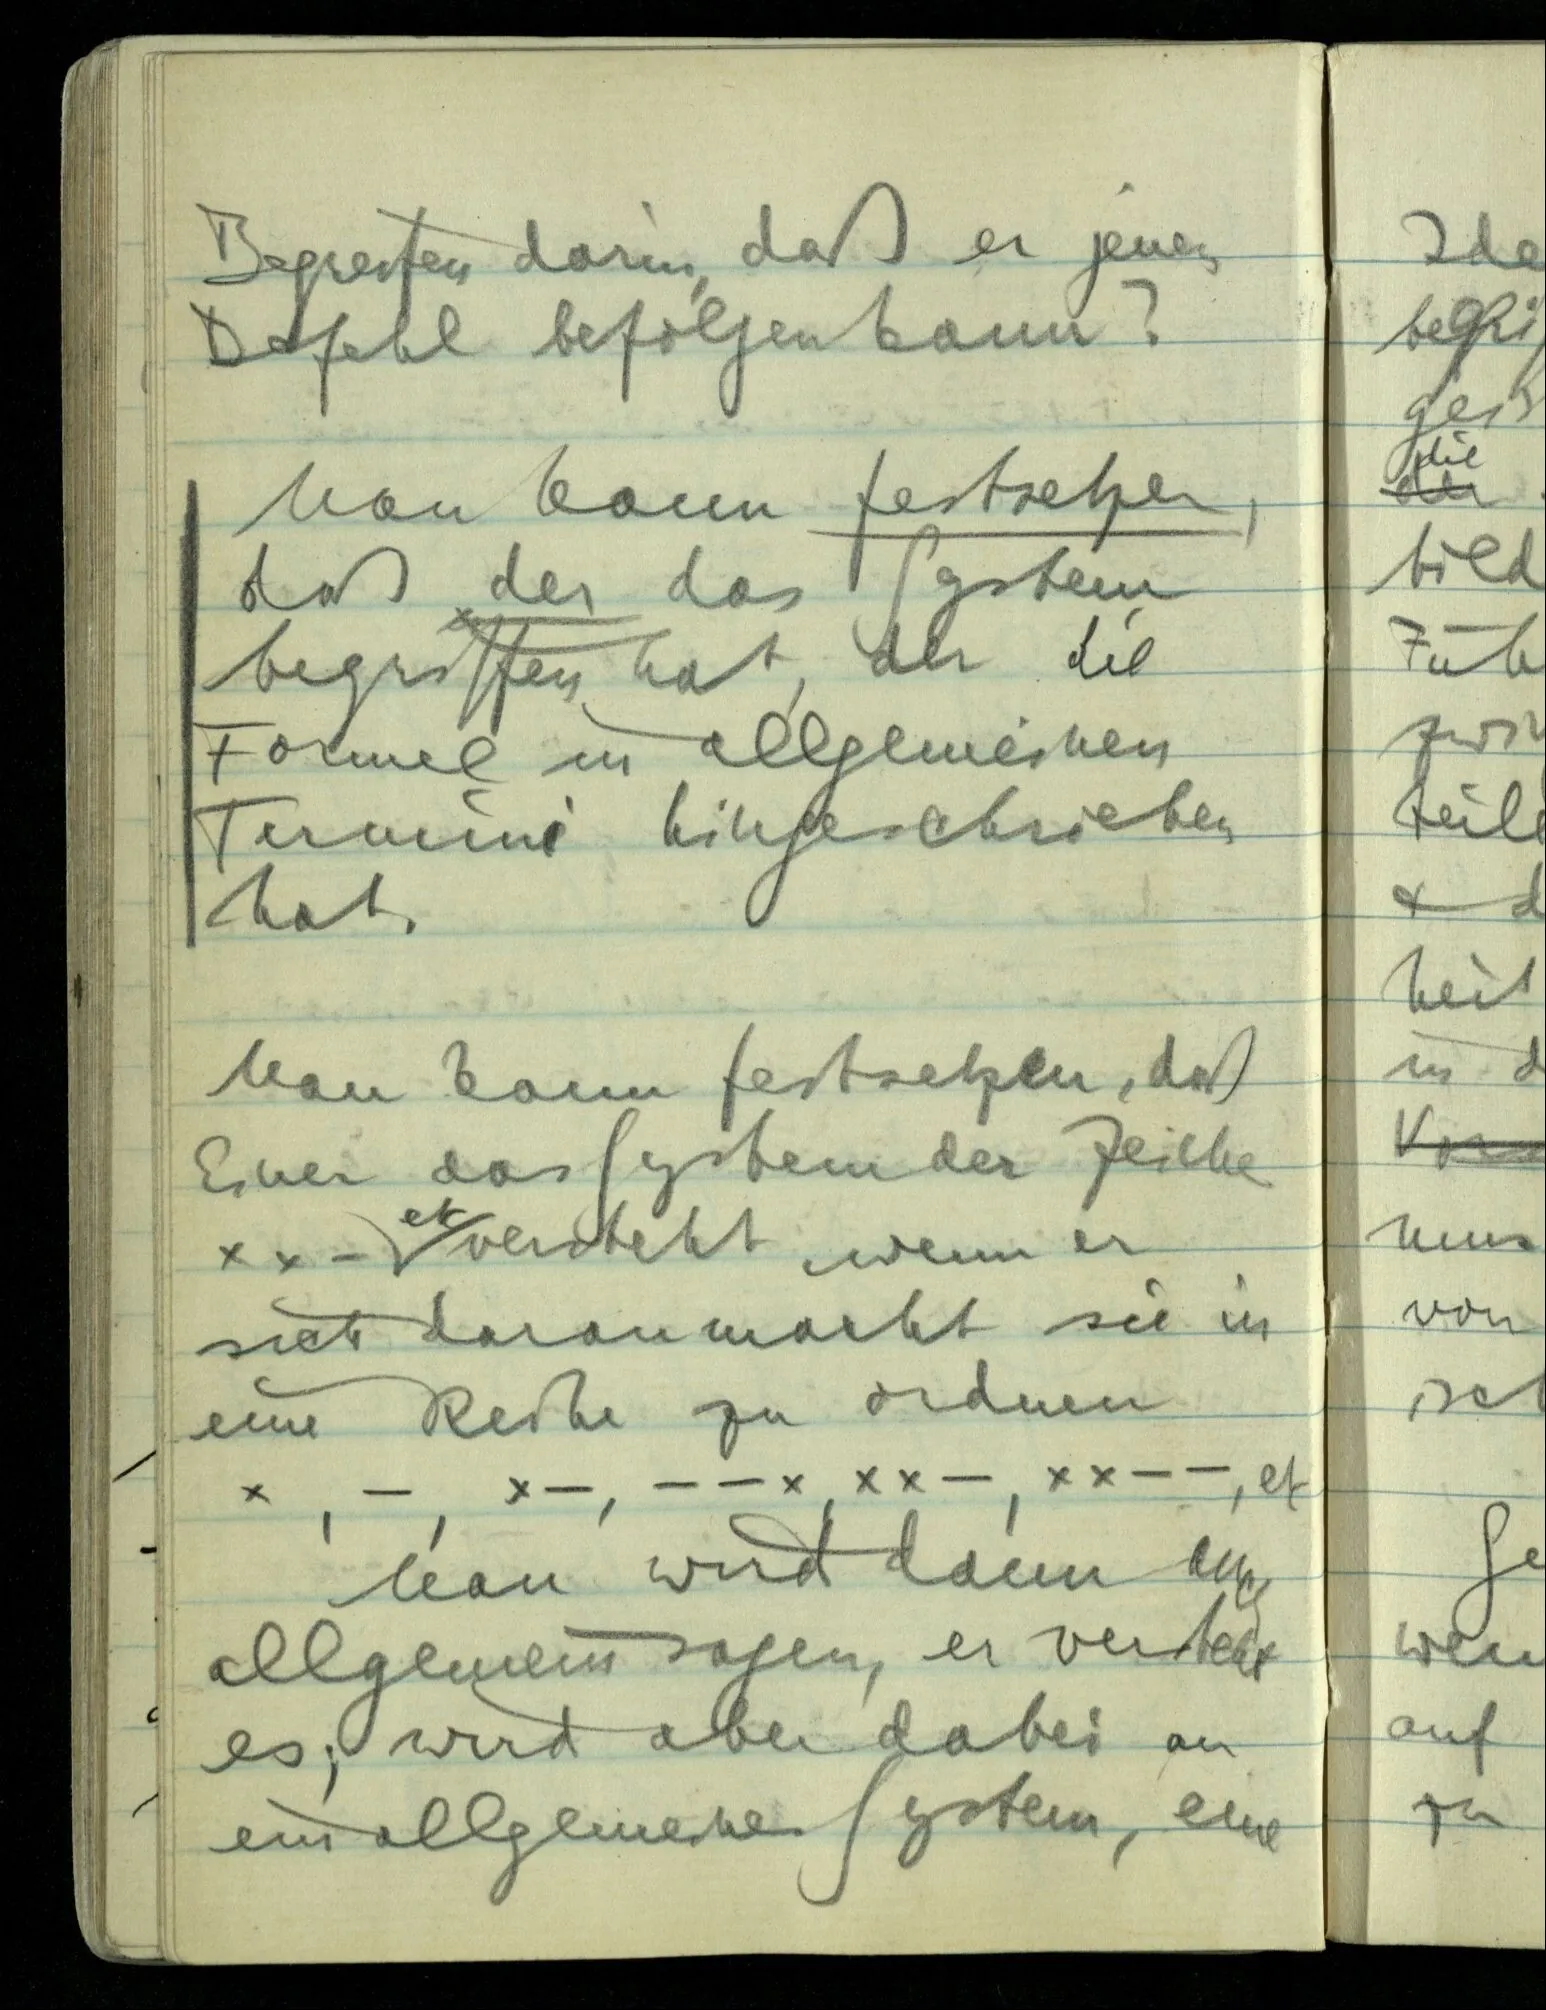 Begreifen darin, daß er jenen
Befehl befolgen kann?
Man kann festsetzen,
daß der das System
begriffen hat, der die
Formel in allgemeinen
Termini hingeschrieben
hat.
Man kann festsetzen, daß
Einer das System der Zeiche
x x – etc versteht, wenn er
sich daran macht sie in
eine Reihe zu ordnen
x , – , x –, – – x, x x –, x x – –, etc
Man wird dann
allgemein sagen, er versteht
es; wird aber dabei an
ein allgemeines System, eine
Ide
begrif
geis
die
der
bild
Füh
zwi
teile
& d
heit
in d
muss
von
isch
Ge
wen
auf
zu